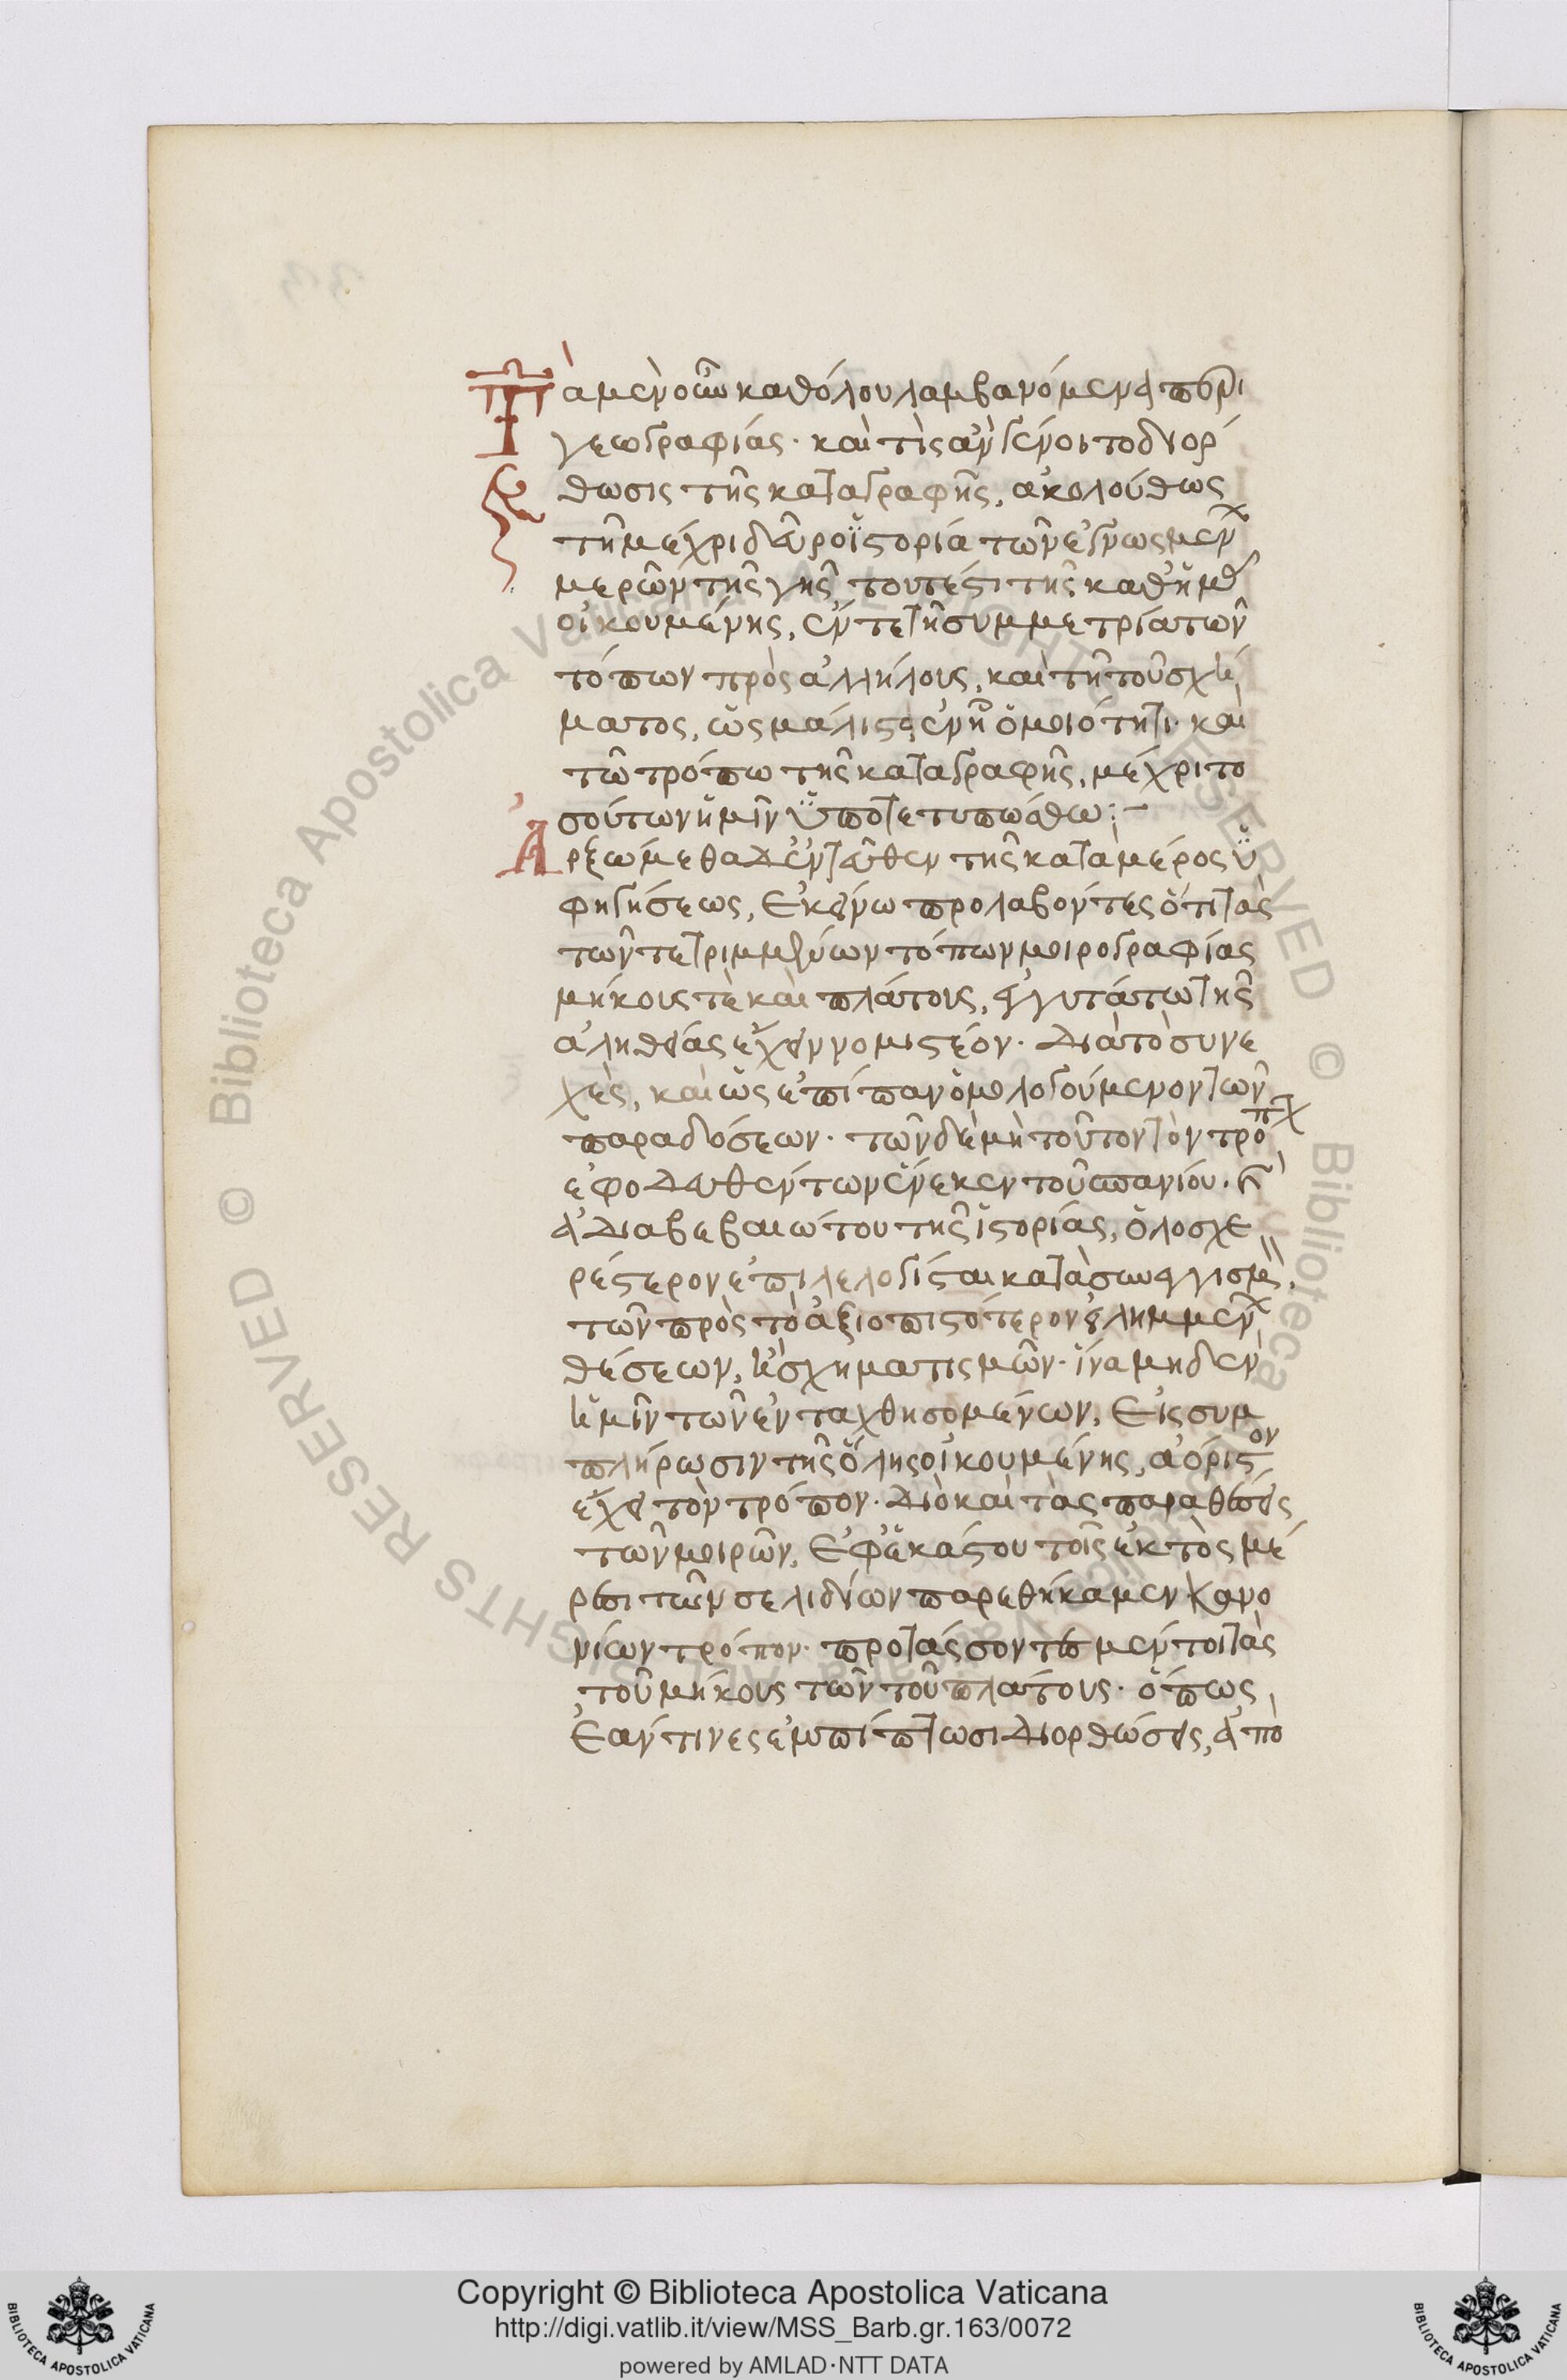 Τὰ μὲν οὖν καθόλου λαμβανόμενα περὶ
γεωγραφίας· καὶ τὶς ἂν γένοιτο διόρ
θωσις τῆς καταγραφῆς, ἀκολούθως
τῆ μέχρι δεῦρο ἱστορία τῶν ἐγνωσμένων
μερῶν τῆς γῆς, τουτέστι τῆς καθ' ἡμᾶς
οἰκουμένης, ἔν τε τῆ συμμετρία τῶν
τόπων πρὸς ἀλλήλους, καὶ τῆ τοῦ σχή
ματος, ὡς μάλιστα ἐνῆν ὁμοιότητι· καὶ
τῶ τρόπω τῆς καταγραφῆς, μέχρι το
σούτων ἡμῖν ὑποτετυπώσθω:-
Ἀρξώμεθα δ' ἐντεῦθεν τῆς κατὰ μέρος ὑ
φηγήσεως, ἐκείνω προλαβόντες ὅτι τὰς
τῶν τετριμμένων τόπων μοιρογραφίας
μήκους τὲ καὶ πλάτους, ἐγγυτάτω τῆς
ἀληθείας ἔχειν νομιστέον· διὰ τὸ συνε
χὲς, καὶ ὡς ἐπίπαν ὁμολογούμενον τῶν
παραδόσεων· τῶν δὲ μὴ τοῦτον τὸν τρόπον
ἐφοδευθέντων ἕνεκεν τοῦ σπανίου· καὶ
ἀδιαβεβαιώτου τῆς ἱστορίας, ὁλοσχε
ρέστερον ἐπιλελογίσται κατὰ συνεγγισμὸν
τῶν πρὸς τὸ ἀξιοπιστότερον εἰλημμένων
θέσεων, ἢ σχηματισμῶν· ἵνα μηδὲν
ἡμῖν τῶν ἐνταχθησομένων, εἰς συμ
πλήρωσιν τῆς ὅλης οἰκουμένης, ἀόριστον
ἔχει τὸν τρόπον· διὸ καὶ τὰς παραθέσεις
τῶν μοιρῶν, ἐφ' ἑκάστου τοῖς ἐκτὸς μέ
ρεσι τῶν σελιδίων παρεθήκαμεν κανο
νίων τρόπον· προτάσσοντες μέντοι τὰς
τοῦ μήκους τῶν τοῦ πλάτους· ὅπως
ἐάν τινες ἐμπίπτωσι διορθώσεις, ἀπὸ
Copyright © Biblioteca Apostolica Vaticana
http://digi.vatlib.it/view/MSS_Barb.gr.163/0072
powered by AMLAD·NTT DATA